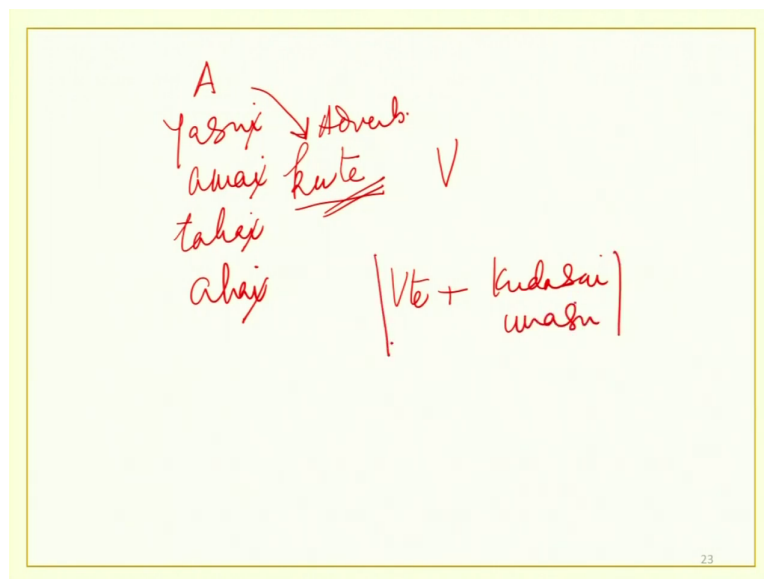 A
yasui Adverb.
amai kute V
takai
akai
Vte + kudasai
imasu
23